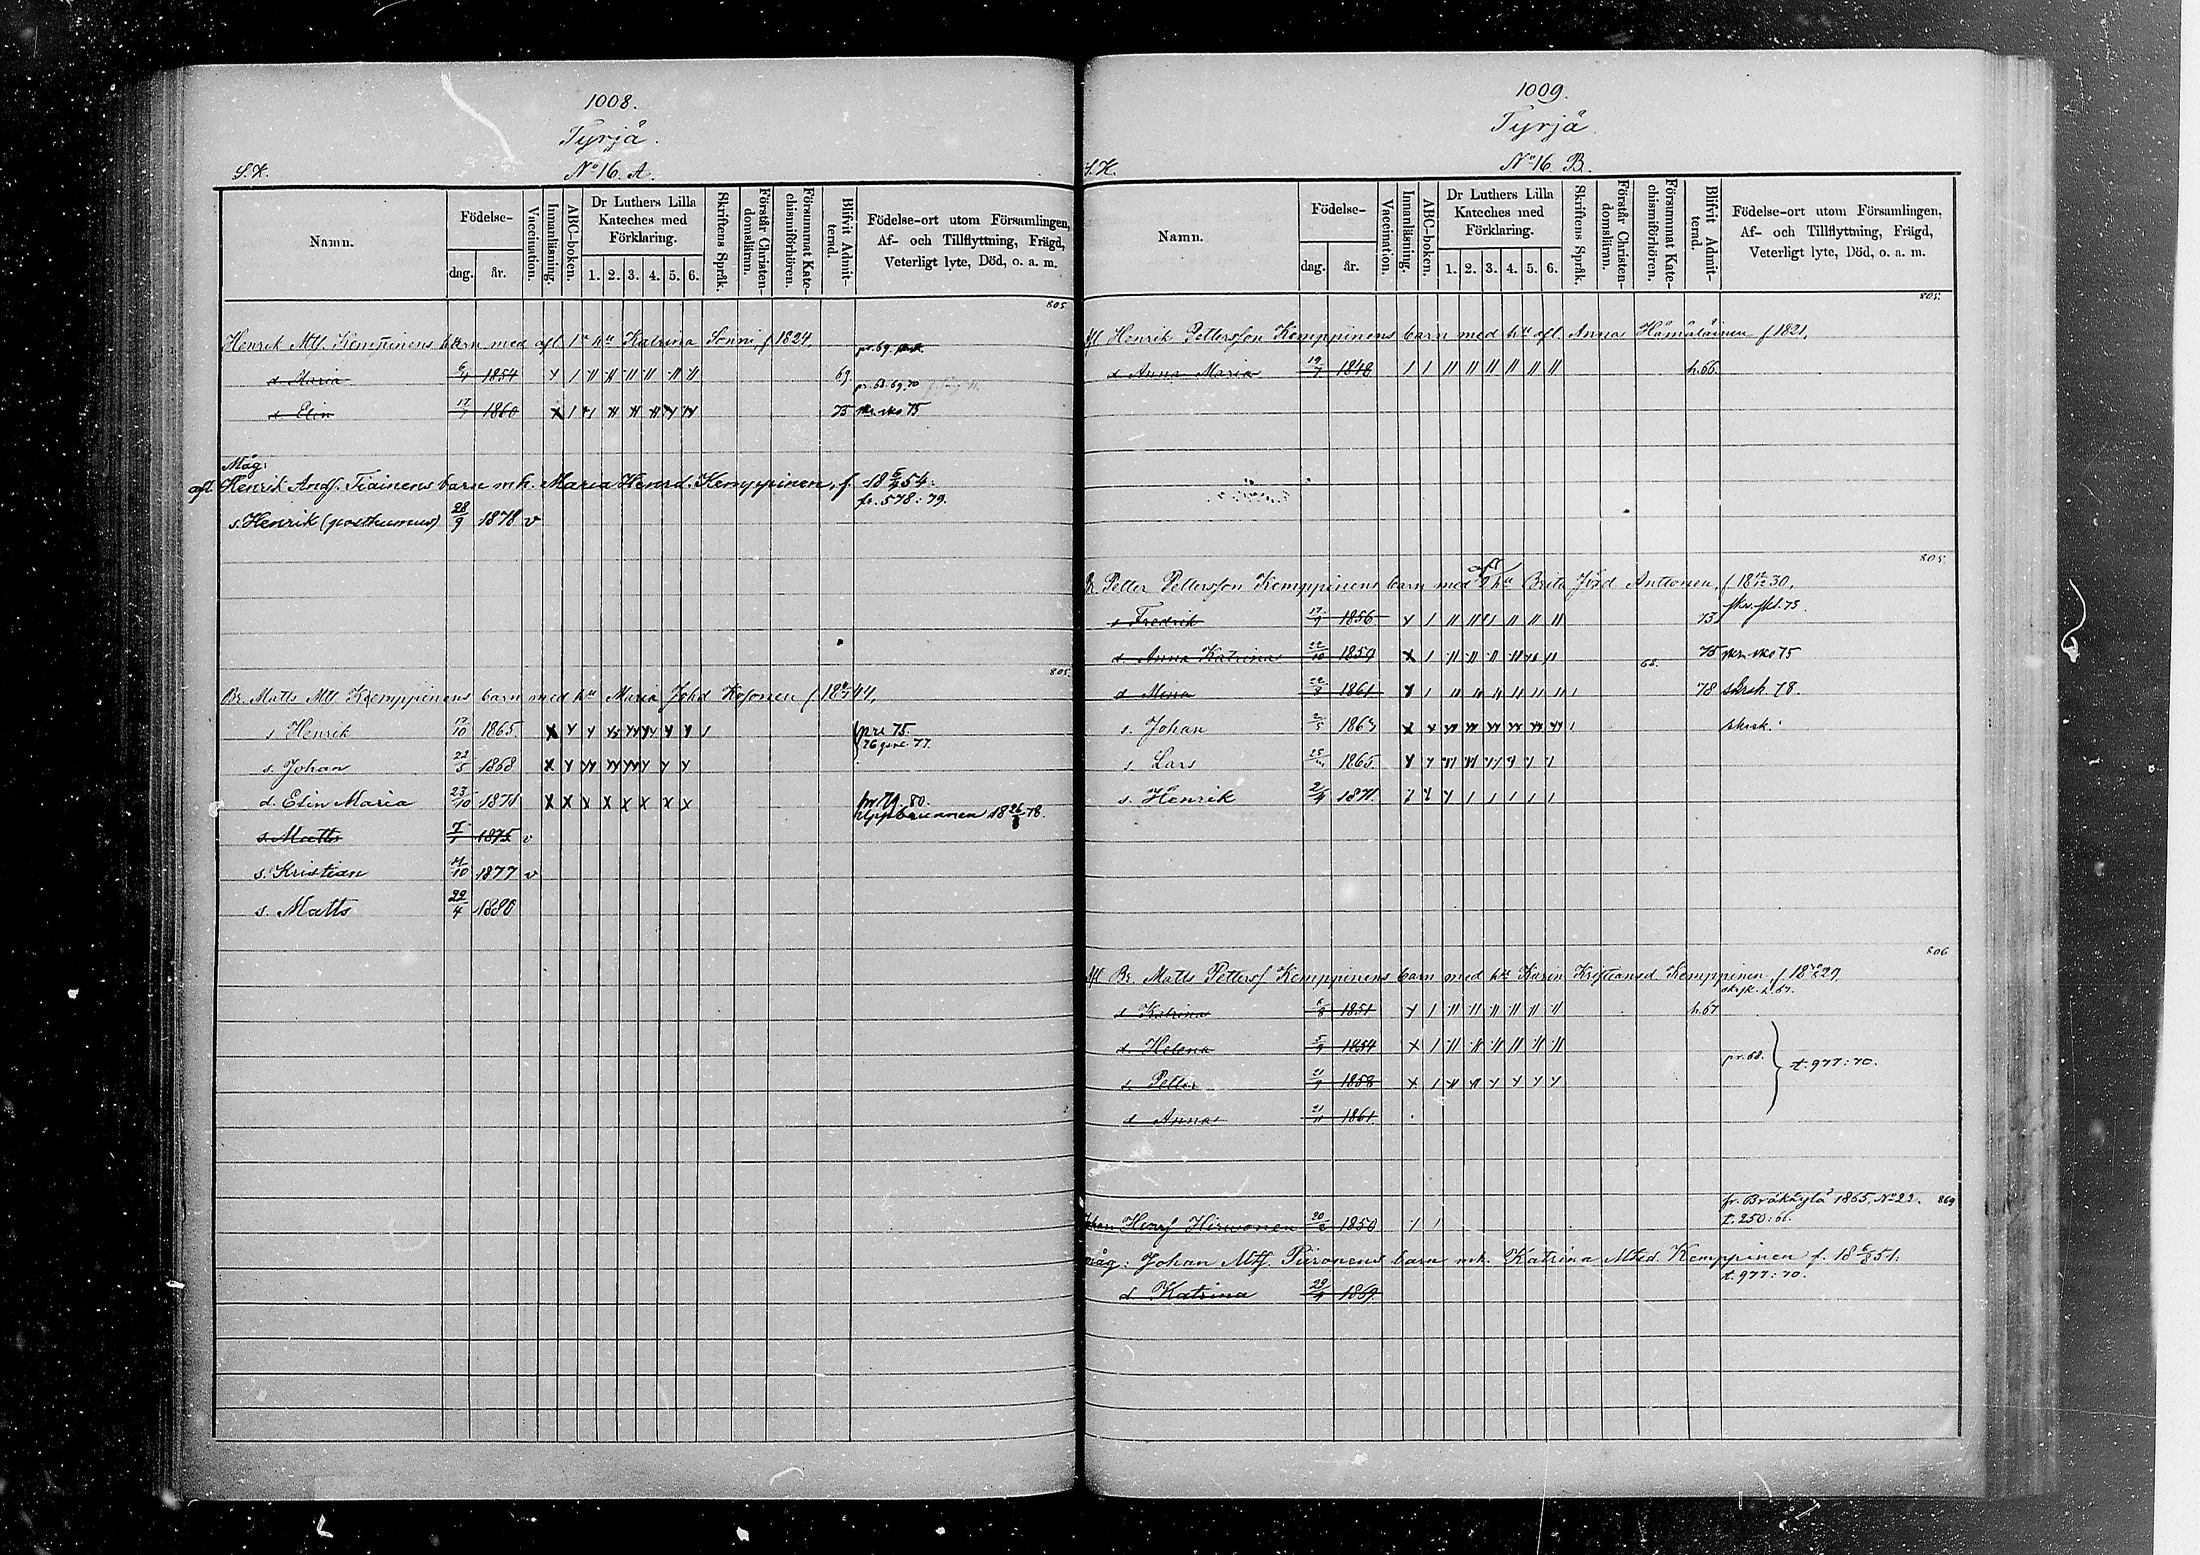 1008.
Tyrjä.
S.K. No 16. A.
Namn. Födelse- dag. år. Vaccination. Innanläsning. ABC-boken. Dr Luthers Lilla Kateches med Förklaring. 1. 2. 3. 4. 5. 6. Skriftens Språk. Förstår Christendomsläran. Försummat Katechismiförhören. Blifvit Admitterad. Födelse-ort utom Församlingen, Af- och Tillflyttning, Frägd, Veterligt lyte, Död, o. a. m.
805.
Henrik Mts. Kemppinens barn med afl. 1a hu Katrina Sonni, f 1824,
pr. 69.
d Maria 6/4 1854 69 pr. 68. 69. 70
d. Elin 17/1 1860 75 skr. sko 75
Måg:
afl. Henrik Andss. Tiainens barn mh. Maria Henrd. Kemppinen, f. 18 6/4 54.
fr. 578:79.
s. Henrik (posthumus) 28/9 1878 v
805.
Br. Matts Mts. Kemppinens barn med hu Maria Johd Kosonen f 18 44,
s Henrik 17/10 1865 pr. 75. 76 77.
s. Johan 22/5 1868
d. Elin Maria 23/10 1871 pr. 79, 80.
Uppbrunnen 18 26/8 78.
s. Matts 7/1 1875 v
s. Kristian 11/10 1877 v
s. Matts 29/4 1880
1009.
Tyrjä.
S.K. No 16 B.
Namn. Födelse- dag. år. Vaccination. Innanläsning. ABC-boken. Dr Luthers Lilla Kateches med Förklaring. 1. 2. 3. 4. 5. 6. Skriftens Språk. Förstår Christendomsläran. Försummat Katechismiförhören. Blifvit Admitterad. Födelse-ort utom Församlingen, Af- och Tillflyttning, Frägd, Veterligt lyte, Död, o. a. m.
805.
Afl Henrik Pettersson Kemppinens barn med hu afl. Anna Hämäläinen f 1821,
d Anna Maria 19/7 1848 h. 66.
805.
Br. Petter Pettersson Kemppinens barn med afl 2 hu Brita Jörd Anttonen, f 18 30,
s Fredrik 17/1 1856 73 skr. skl. 73.
d Anna Katrina 22/10 1859 68. 75 skr. sko 75
d Mina 22/3 1861 78 skrsk. 78.
s. Johan 2/5 1863 skrsk.
s. Lars 25/ 1865.
s. Henrik 2/4 1871.
806
Afl Br. Matts Petterss Kemppinens barn med hu Karin Kristiansd Kemppinen f 18 29,
skrsk. h. 67.
d Katrina 6/8 1851 h. 67
d. Helena 5/9 1854
pr. 68. t. 977:70.
s. Petter 21/1 1858
d Anna 21/11 1861.
fr. Bråkäylä 1865, No 29. 869
Johan Henrs Hirvonen 20/6 1850 t. 250:66.
måg: Johan Mtss. Piironens barn mh. Katrina Mtsd. Kemppinen f. 18 6/8 51.
t. 977:70.
d. Katrina 29/4 1869.